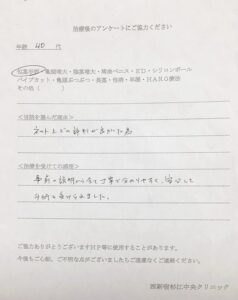 治療後のアンケートにご協力ください
年齢 40 代
包茎手術・亀頭増大・陰茎増大・埋没ペニス・ED・シリコンボール
パイプカット・亀頭ぶつぶつ・長茎・性病・早漏・HARG療法
その他（ ）
＜当院を選んだ理由＞
ネット上での評判が良かった為
＜治療を受けての感想＞
事前の説明から全て丁寧で分かりやすく、安心して
手術を受けられました。
ご協力ありがとうございますHP等に使用することがあります。
今後もご心配、ご不明な点がございましたらご遠慮なくご連絡ください。
西新宿杉江中央クリニック